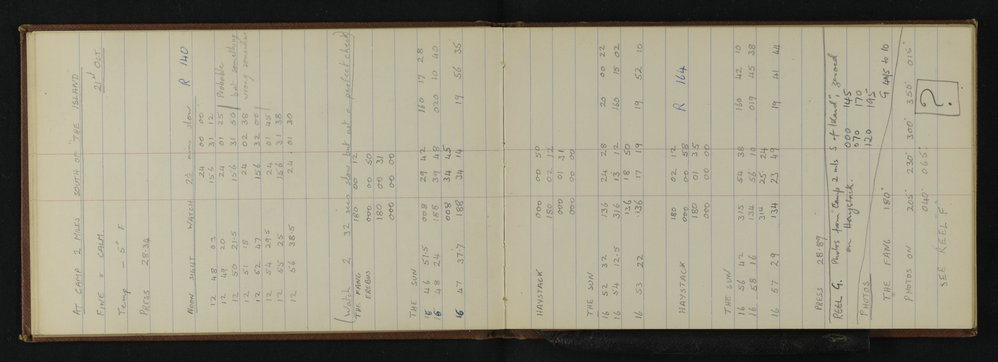 AT CAMP 2 MILES SOUTH OF "THE ISLAND" 21st OCT
FINE & CALM
Temp -5° F
PRESS 28.34
NOON SIGHT WATCH 2½ mins slow R 140
12 48 03 24 00 00
12 49 20 156 31 12
12 50 21.5 24 01 25 Probable
12 51 18 156 31 50 but something
12 52 47 24 02 38 wrong somewhere
12 54 29.5 156 32 00
12 55 25 24 01 45
12 56 38.5 156 31 38
24 01 30
(Watch 2 32 secs slow but not a perfect check)
THE FANG 180 00 12
EREBUS 000 00 50
180 00 31
000 00 00
THE SUN
16 46 51.5 008 29 42 160 17 28
16 48 24 188 39 48 020 10 40
008 34 45
16 47 37.7 188 34 14 19 56 35
HAYSTACK 000 00 50
180 02 12
000 01 31
000 00 00
THE SUN
16 52 32 136 24 28 20 00 22
16 54 12.5 316 13 12 160 15 02
136 18 50
16 53 22 136 17 19 19 52 10
HAYSTACK 180 02 12 R 164
000 00 58
180 01 35
000 00 00
THE SUN
16 56 42 315 54 38 160 42 10
16 58 16 134 56 10 019 45 38
314 25 24
16 57 29 134 23 49 19 41 44
PRESS 28.89
REEL G. Photos from "Camp 2 mls S of Island", ground
on Haystack. 000 145
PHOTOS 070 170
120 195
THE FANG 180° G 495 to 10
PHOTOS ON 205° 230° 300° 350° 016°
040° 065°
SEE REEL F ?